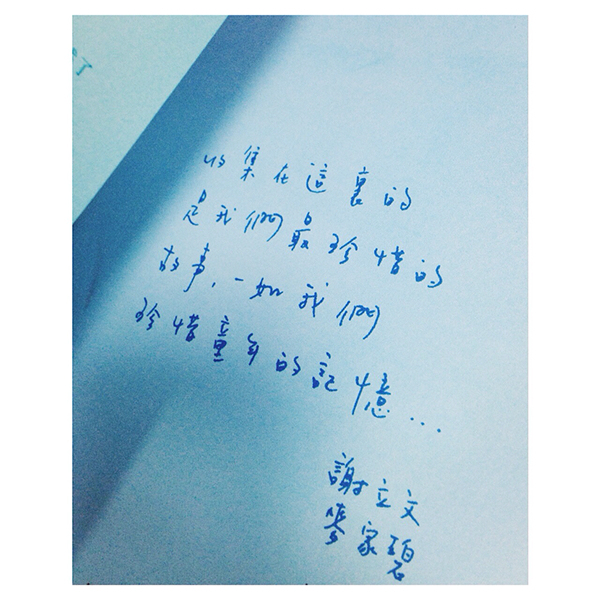 收集在這裏的
是我們最珍惜的
故事，一如我們
珍惜童年的記憶...
謝立文
麥家碧